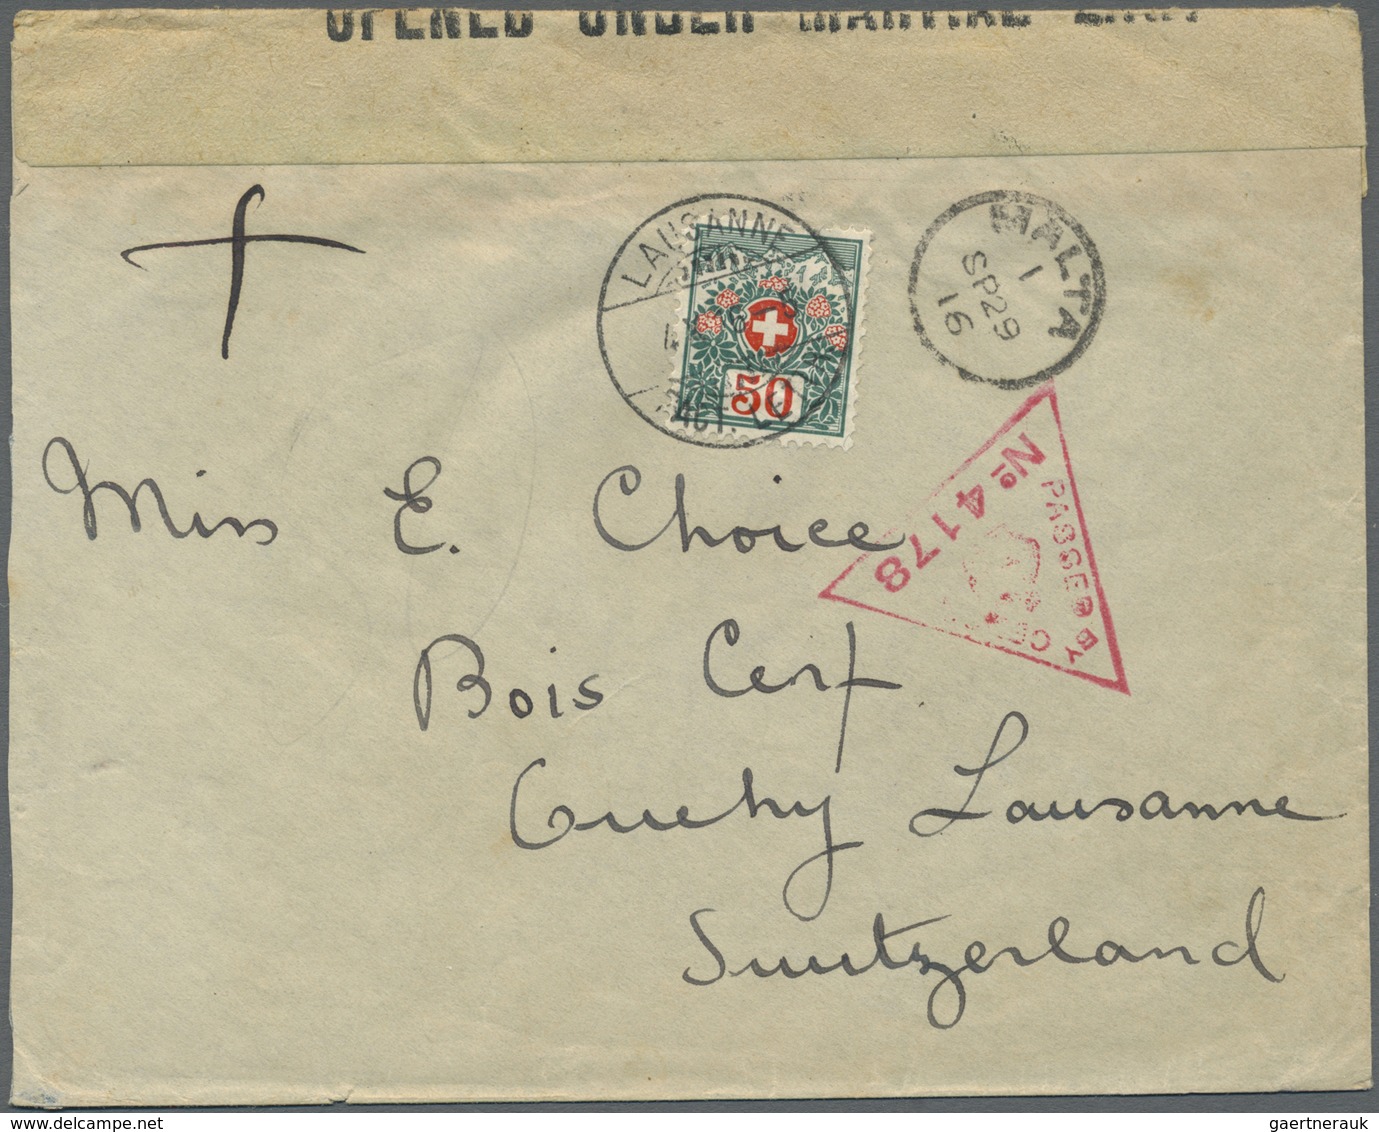 OPENED UNDER MARTIAL LAW
LAUSANNE
50
MALTA
1
SP29
16
No 4178
PASSED BY
Miss E. Choice
Bois Cerf
Ouchy Lausanne
Switzerland
gaertnerauk @ delcampe.net